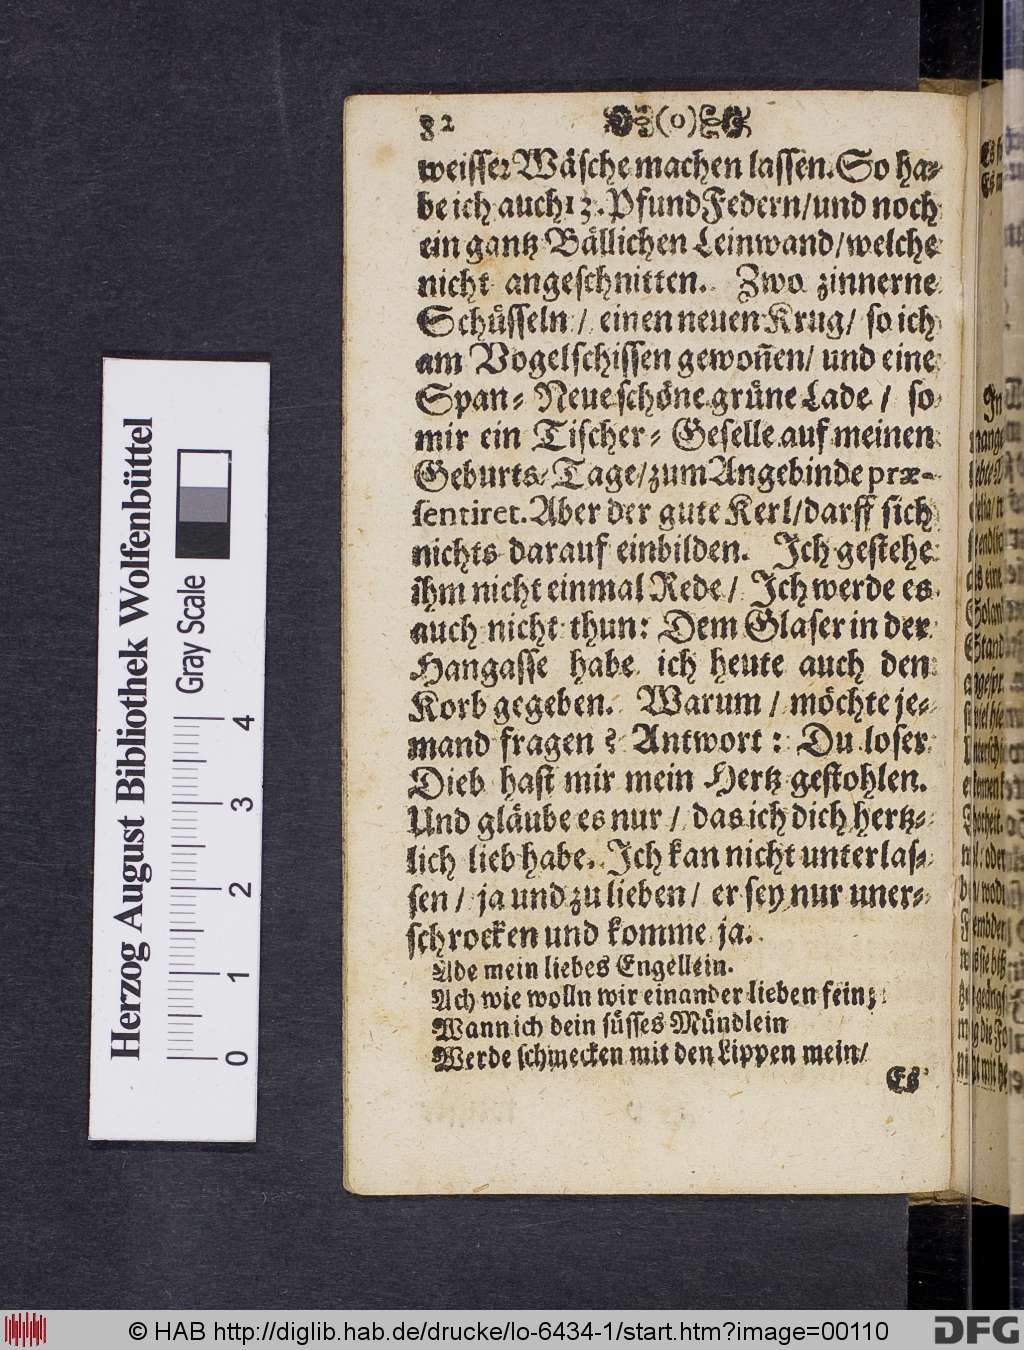 82 (o)
weisser Wäsche machen lassen. So ha-
be ich auch 13. Pfund Federn/und noch
ein gantz Bällichen Leinwand/welche
nicht angeschnitten. Zwo zinnerne
Schüsseln/ einen neuen Krug/ so ich
am Vogelschissen gewoñen/ und eine
Span- Neue schöne grüne Lade / so
mir ein Tischer- Geselle auf meinen
Geburts-Tage/zum Angebinde præ-
sentiret. Aber der gute Kerl/darff sich
nichts darauf einbilden. Ich gestehe
ihm nicht einmal Rede/ Ich werde es
auch nicht thun: Dem Glaser in der
Hangasse habe ich heute auch den
Korb gegeben. Warum / möchte je-
mand fragen ? Antwort : Du loser
Dieb hast mir mein Hertz gestohlen.
Und gläube es nur / das ich dich hertz-
lich lieb habe. Ich kan nicht unterlas-
sen / ja und zu lieben/ er sey nur uner-
schrocken und komme ja.
Ade mein liebes Engellein.
Ach wie wolln wir einander lieben fein;
Wann ich dein süsses Mündlein
Werde schmecken mit den Lippen mein/
Es
Herzog August Bibliothek Wolfenbüttel
Gray Scale
0 1 2 3 4
© HAB http://diglib.hab.de/drucke/lo-6434-1/start.htm?image=00110
DFG